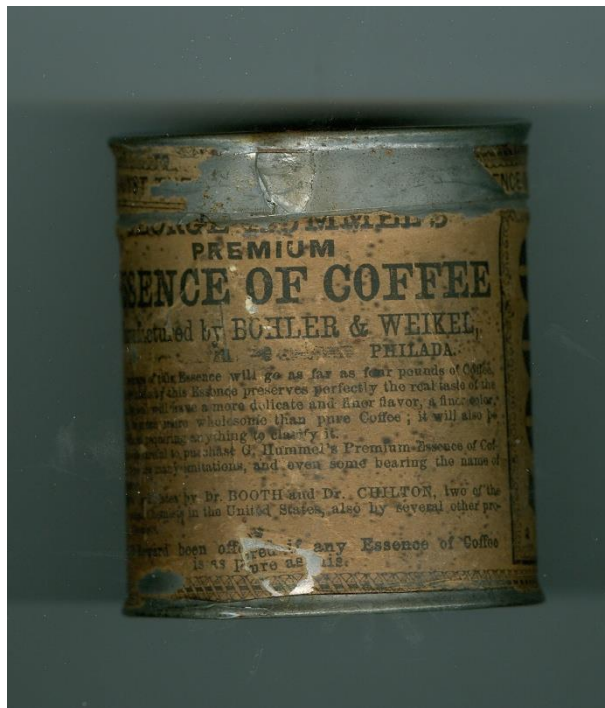 PREMIUM
SSENCE OF COFFEE
by BOHLER & WEIKEL,
PHILADA.
of this Essence will go as far as four pounds of Coffee,
this Essence preserves perfectly the real taste of the
have a more delicate and finer flavor, a finer color,
more wholesome than pure Coffee; it will also be
anything to clarify it.
to purchase G. Hummel's Premium Essence of Cof-
many imitations, and even some bearing the name of
by Dr. BOOTH and Dr. CHILTON, two of the
in the United States, also by several other pro-
been offered if any Essence of Coffee
is as pure as this.